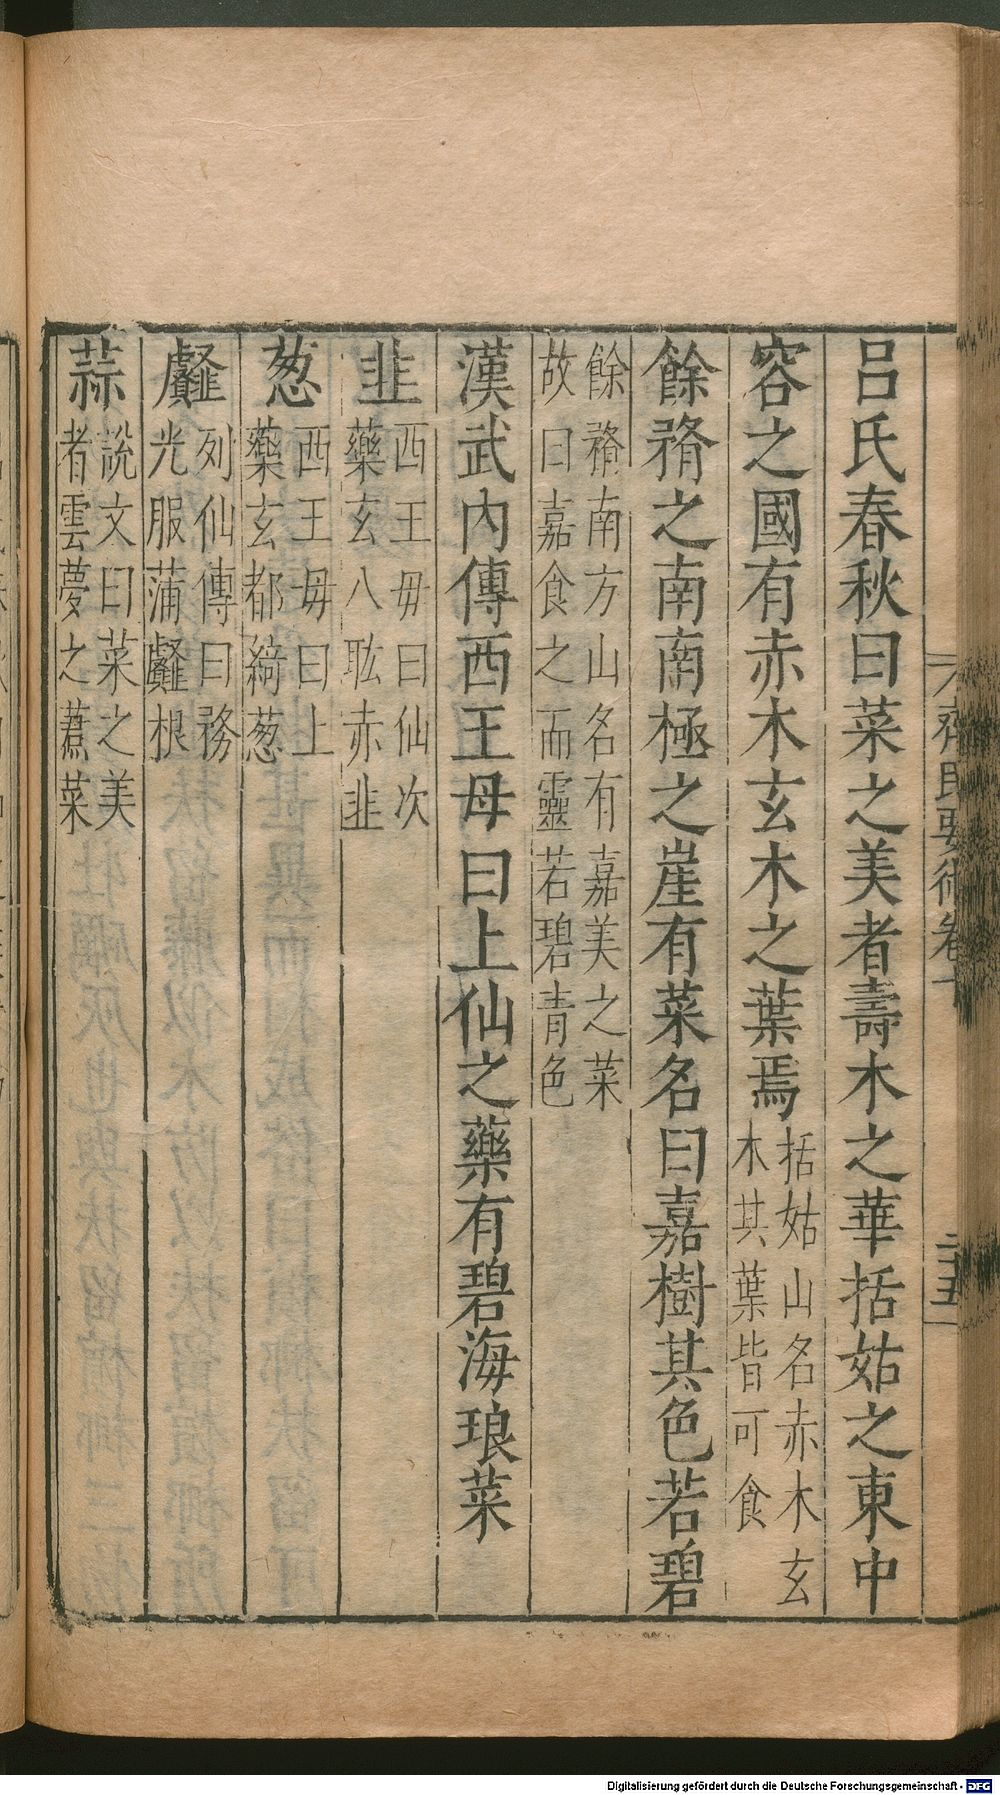 呂氏春秋曰菜之美者壽木之華括姑之東中
容之國有赤木玄木之葉焉括姑山名赤木玄
木其葉皆可食
餘瞀之南南極之崖有菜名曰嘉樹其色若碧
餘瞀南方山名有嘉美之菜
故曰嘉食之而靈若碧青色
漢武內傳西王母曰上仙之藥有碧海琅菜
韭西王毋曰仙次
藥玄八耾赤韭
葱西王毋曰上
藥玄都綺葱
䪥列仙傳曰務
光服蒲䪥根
蒜說文曰菜之美
者雲夢之䕩菜
齊民要術卷十
二十五
Digitalisierung gefördert durch die Deutsche Forschungsgemeinschaft - DFG